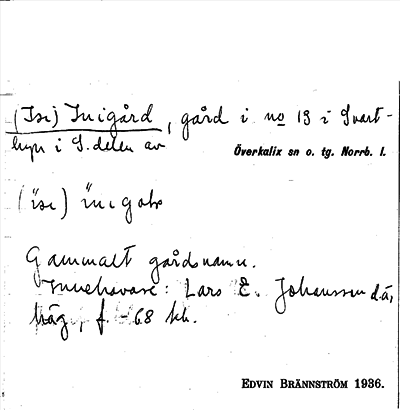 (Isi) Inigård, gård i no 13 i Svart-
byn i S. delen av
Överkalix sn o. tg. Norrb. l.
(isi) inigots
Gammalt gårdsnamn.
Innehavare: Lars E. Johansson d.ä,
f. -68
EDVIN BRÄNNSTRÖM 1936.